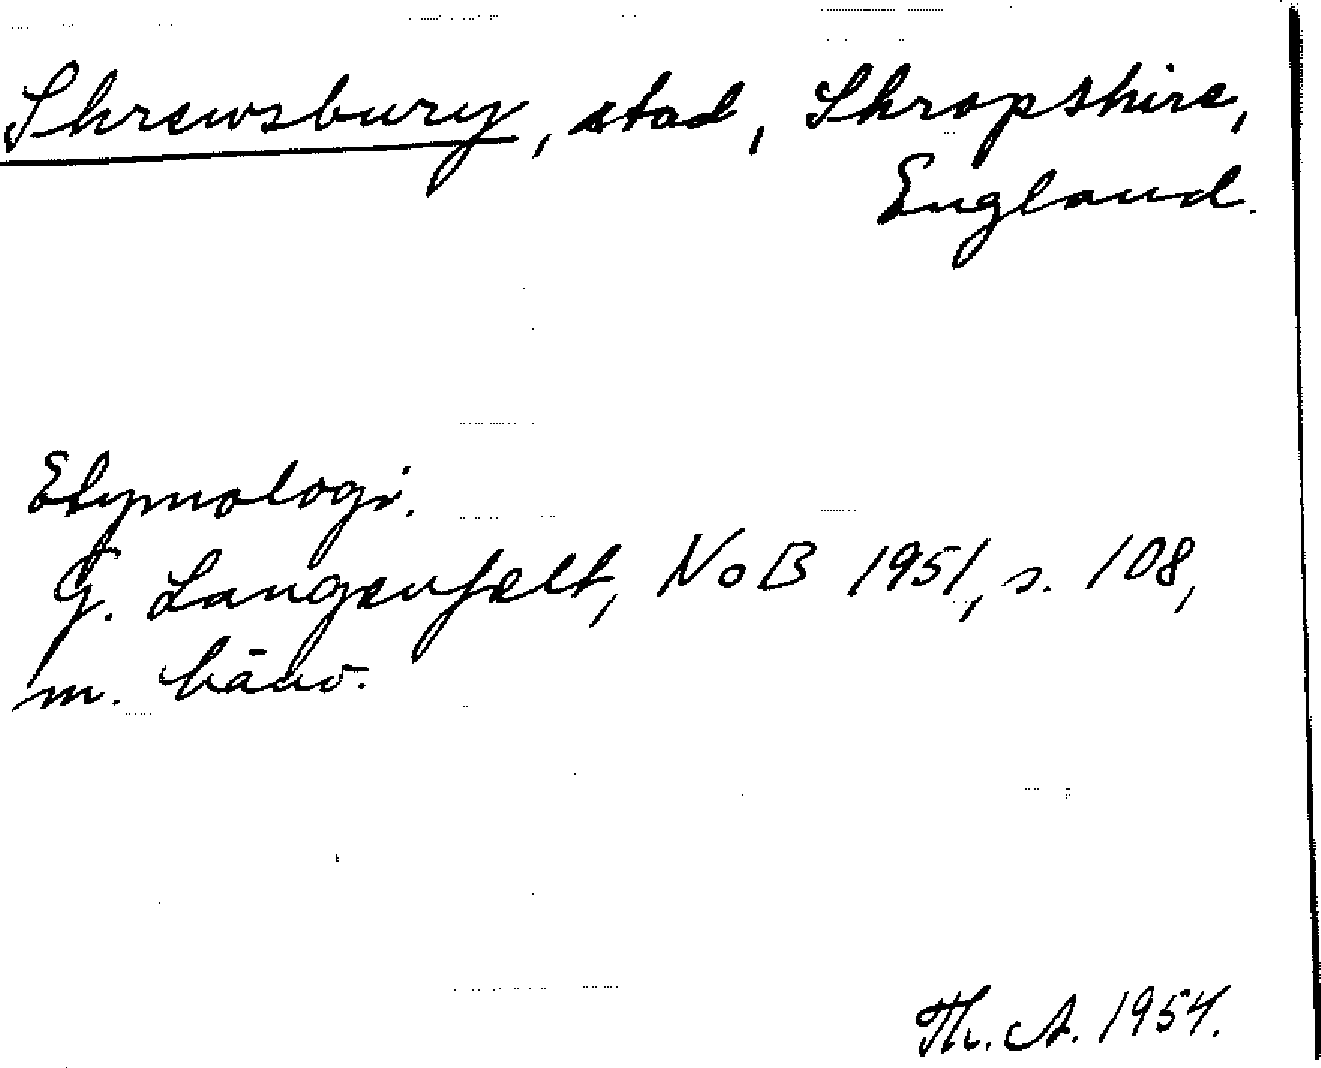 Shrewsbury, stad, Shropshire,
England.
Etymologi.
G. Langenfelt, NoB 1951, s. 108,
m. hänv.
Th. A. 1954.